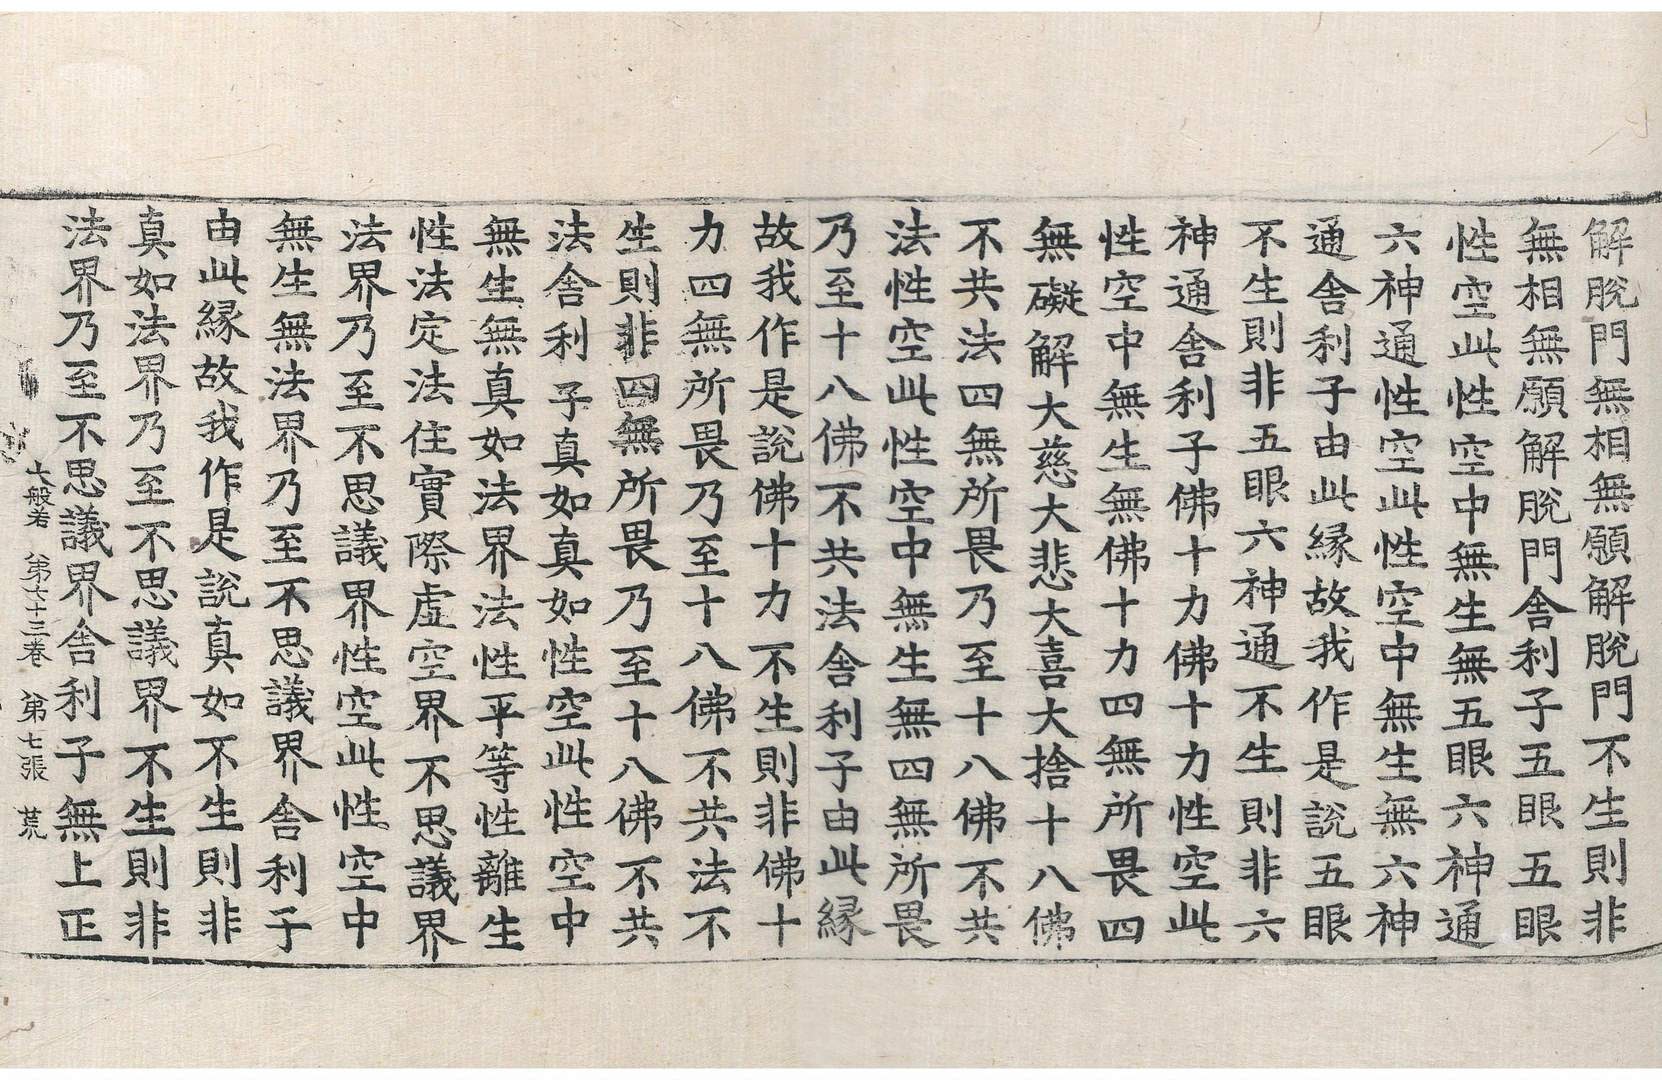 解脫門無相無願解脫門不生則非
無相無願解脫門舍利子五眼五眼
性空此性空中無生無五眼六神通
六神通性空此性空中無生無六神
通舍利子由此縁故我作是說五眼
不生則非五眼六神通不生則非六
神通舍利子佛十力佛十力性空此
性空中無生無佛十力四無所畏四
無礙解大慈大悲大喜大捨十八佛
不共法四無所畏乃至十八佛不共
法性空此性空中無生無四無所畏
乃至十八佛不共法舍利子由此縁
故我作是說佛十力不生則非佛十
力四無所畏乃至十八佛不共法不
生則非四無所畏乃至十八佛不共
法舍利子真如真如性空此性空中
無生無真如法界法性平等性離生
性法定法住實際虛空界不思議界
法界乃至不思議界性空此性空中
無生無法界乃至不思議界舍利子
由此縁故我作是說真如不生則非
真如法界乃至不思議界不生則非
法界乃至不思議界舍利子無上正
大般若 第七十三卷 第七張 荒